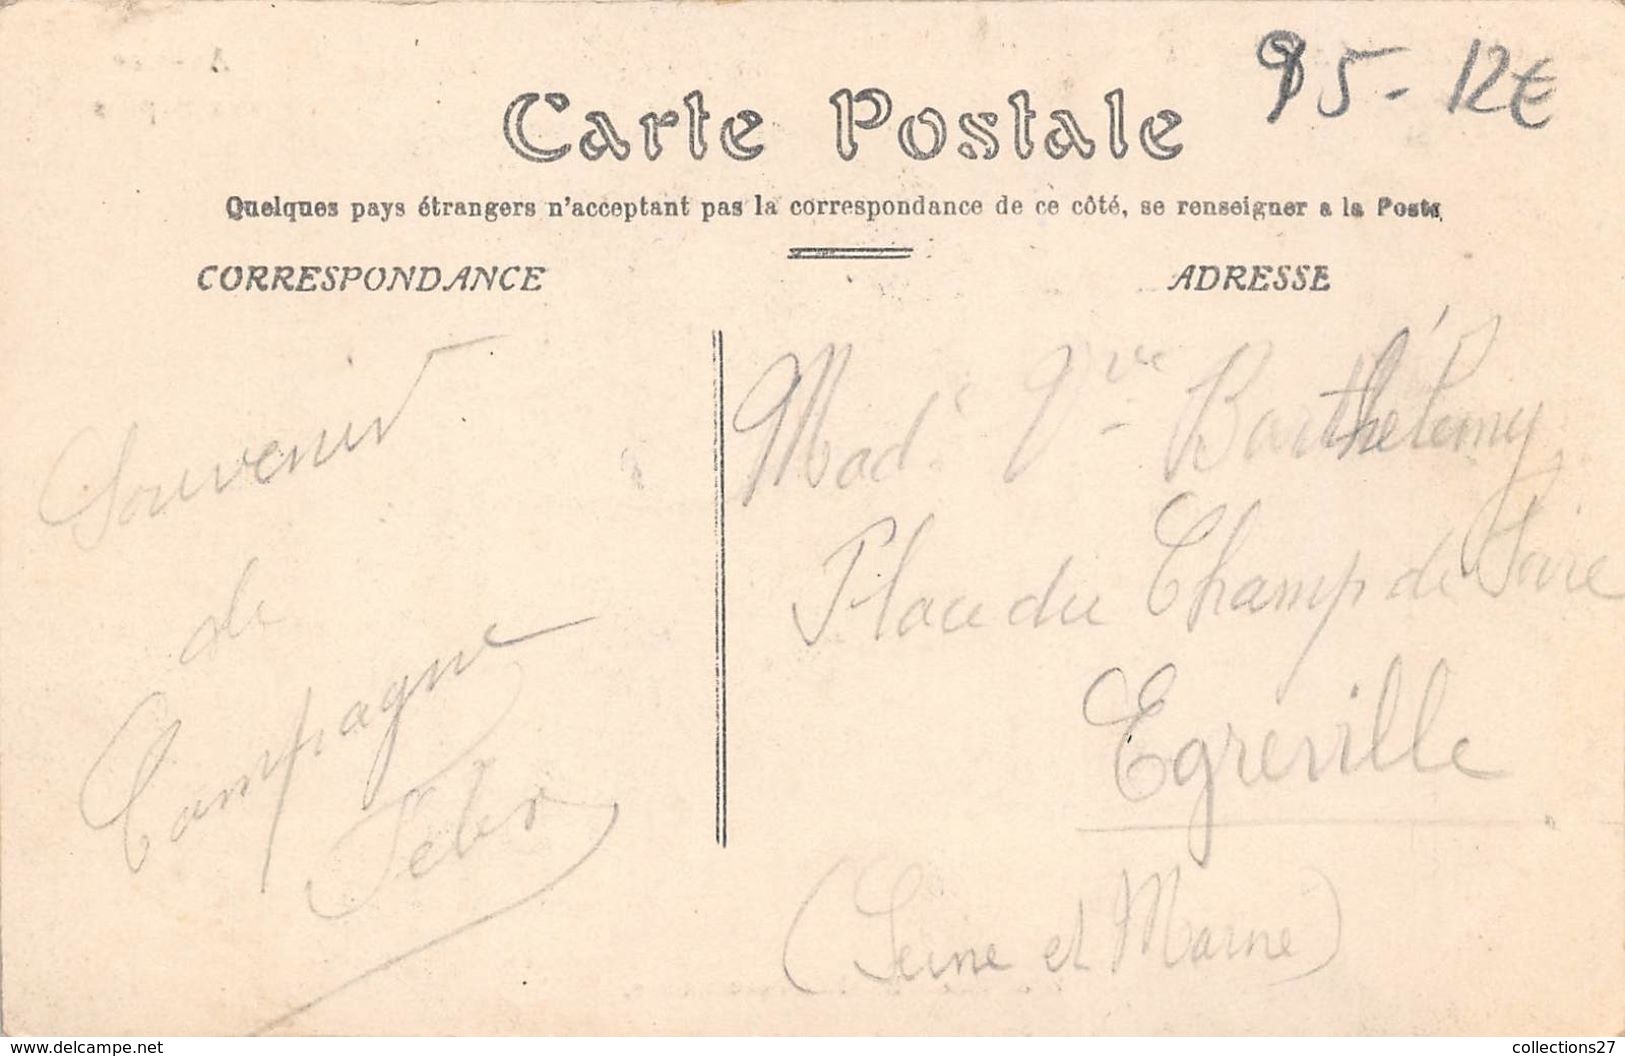 95 - 12€
Carte Postale
Quelques pays étrangers n'acceptant pas la correspondance de ce côté, se renseigner a la Poste
CORRESPONDANCE
ADRESSE
Souvenir
de
Campagne
Mad.e Vve Barthélemy
Place du Champ de Foire
Egreville
(Seine et Marne)
https://www.delcampe.net
collections27